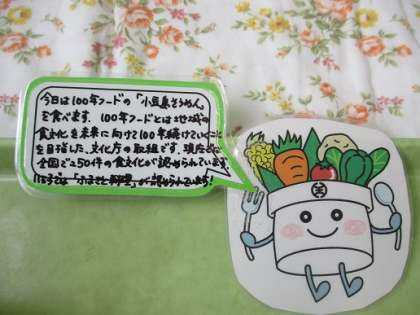 今日は100年フードの「小豆島そうめん」
を食べます。100年フードとは地域の
食文化を未来に向けて100年続けていくこと
を目指した、文化庁の取組です。現在
全国で250件の食文化が認められています
では「ふるさと料理」が認められています!